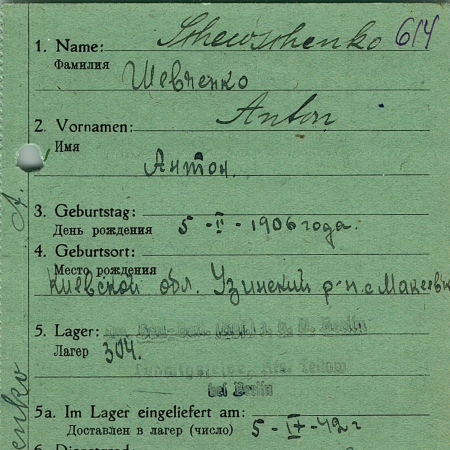 1. Name: Schewschenko 614
Фамилия Шевченко
Anton
2. Vornamen:
Имя
Антон.
3. Geburtstag:
День рождения 5-II-1906 года.
4. Geburtsort:
Место рождения
Киевской обл. Узинский р-н с Макеевк
5. Lager:
Berlin
Лагер 304.
Teltow
bei Berlin
5a. Im Lager eingeliefert am:
Доставлен в лагер (число) 5-IX-42 г